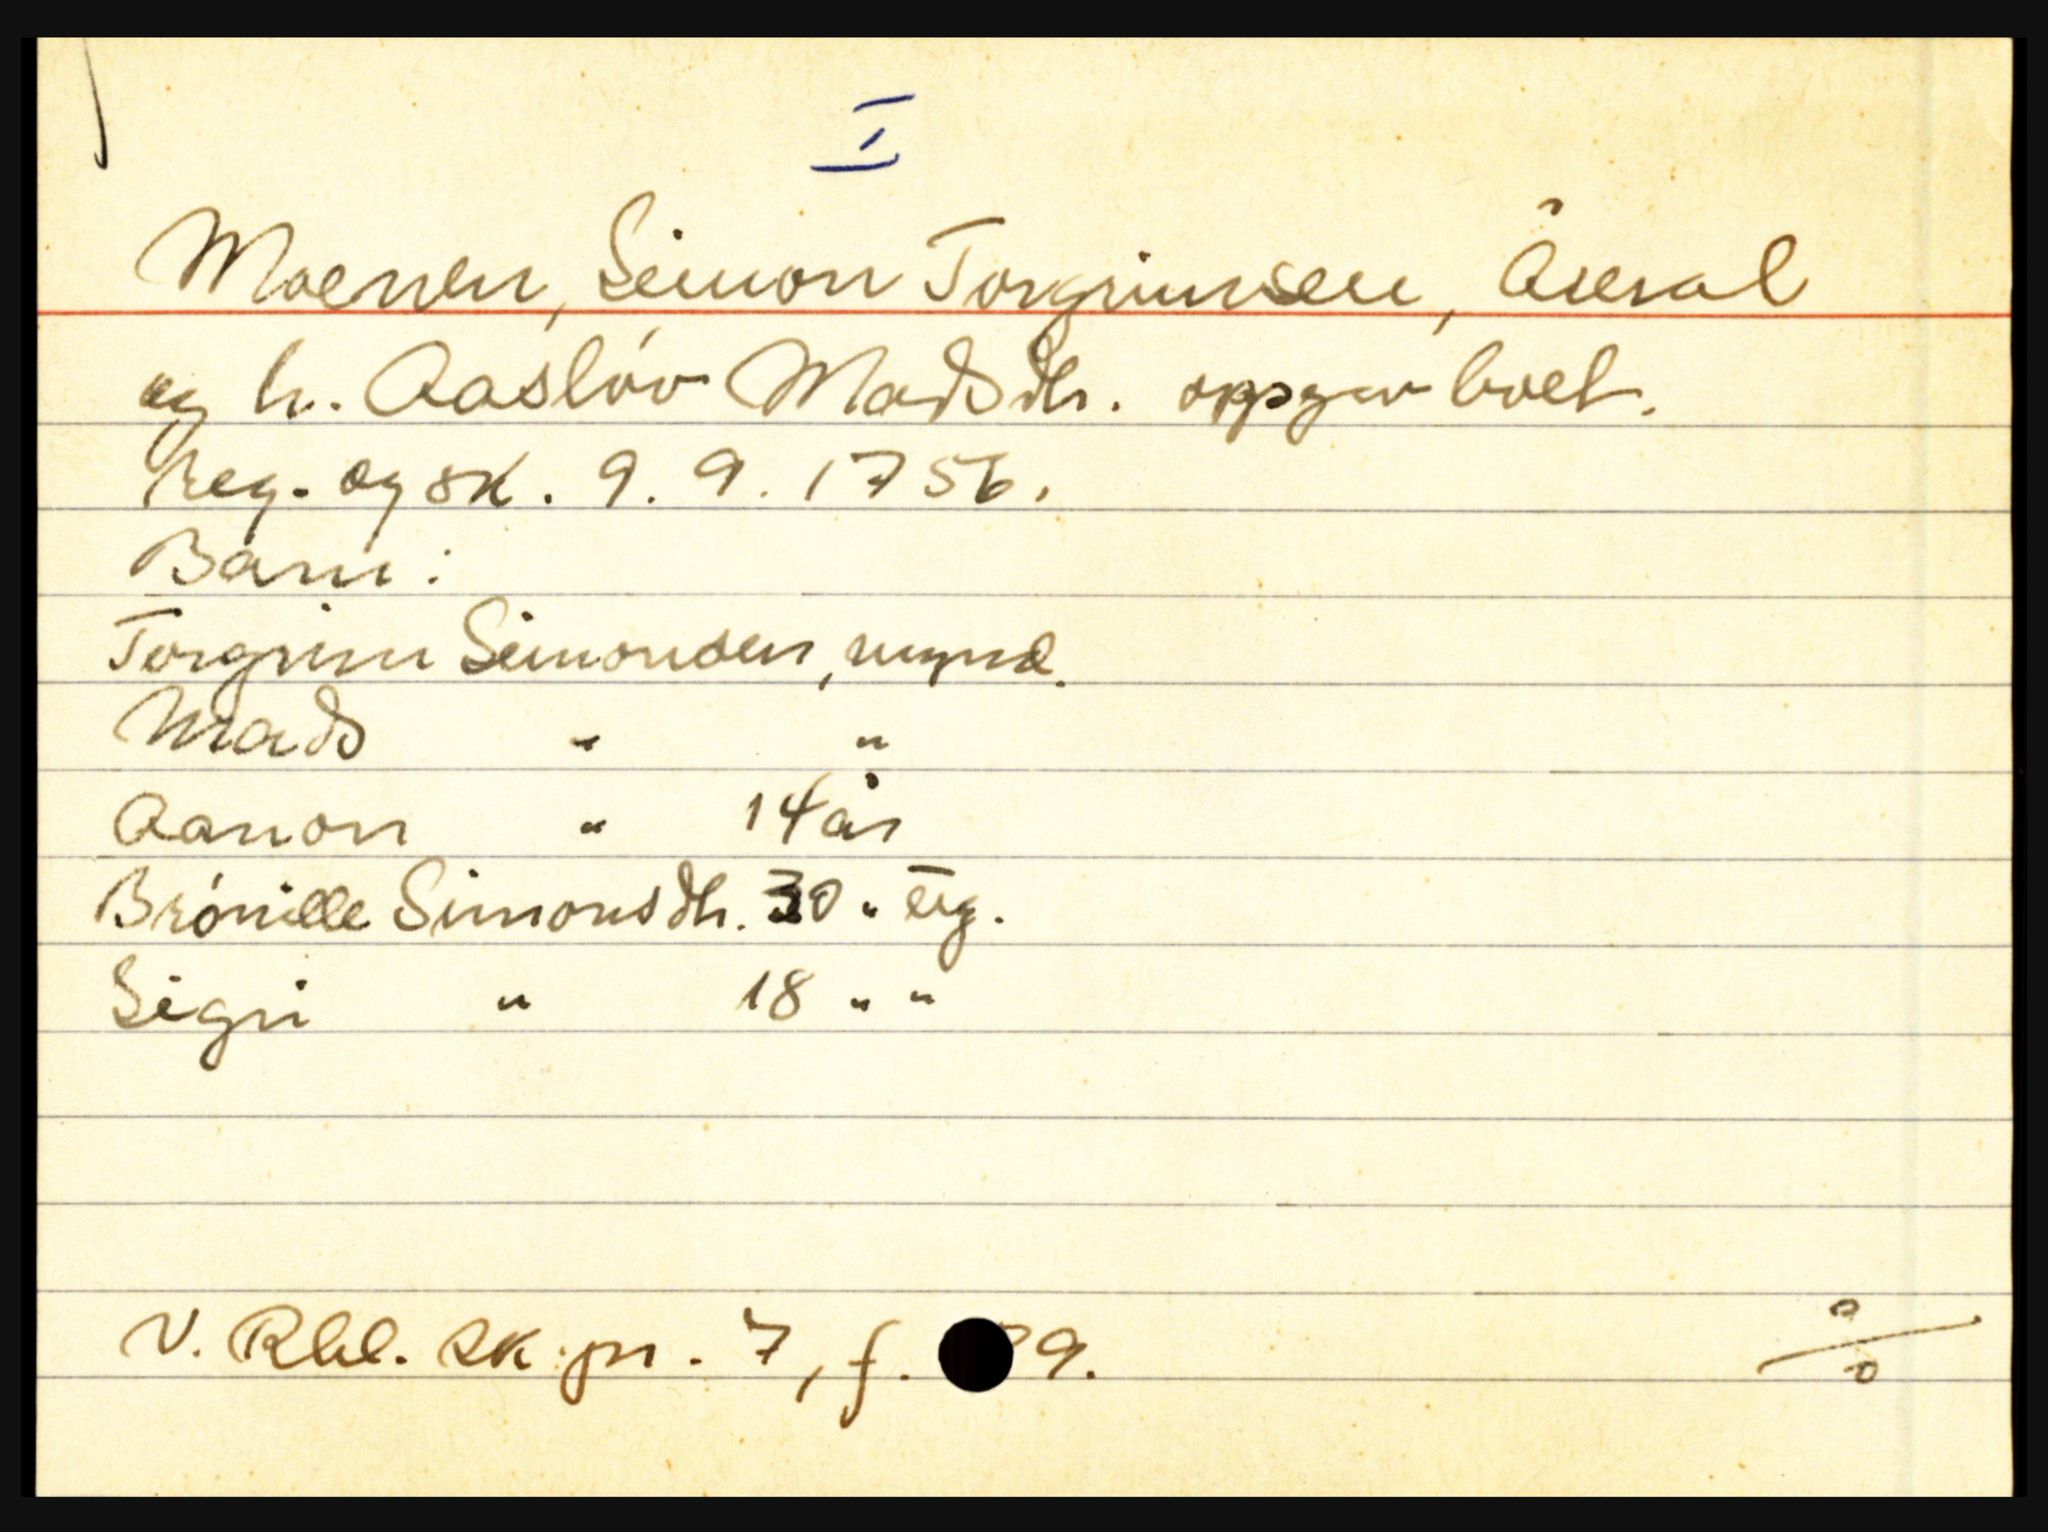 I
Moenen, Simon Torgrimsen, Åseral
og h. Aasløv Madsdtr. oppgav boet.
Reg. og sk. 9. 9. 1756.
Barn:
Torgrim Simonsen, mynd.
Mads " "
Aanon " 14 år
Brónille Simonsdtr. 30 " ug.
Sigri " 18 " "
V. Rbl. sk.pr. 7, f. 9.
0/0